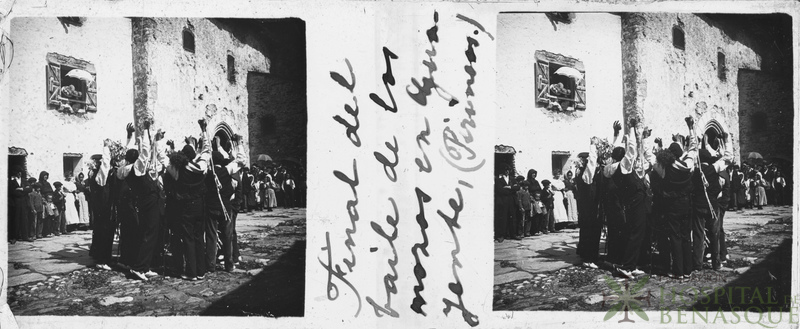 Final del
baile de los
mozos en Gua-
yente, (Pirineos.)
HOSPITAL DE
BENASQUE